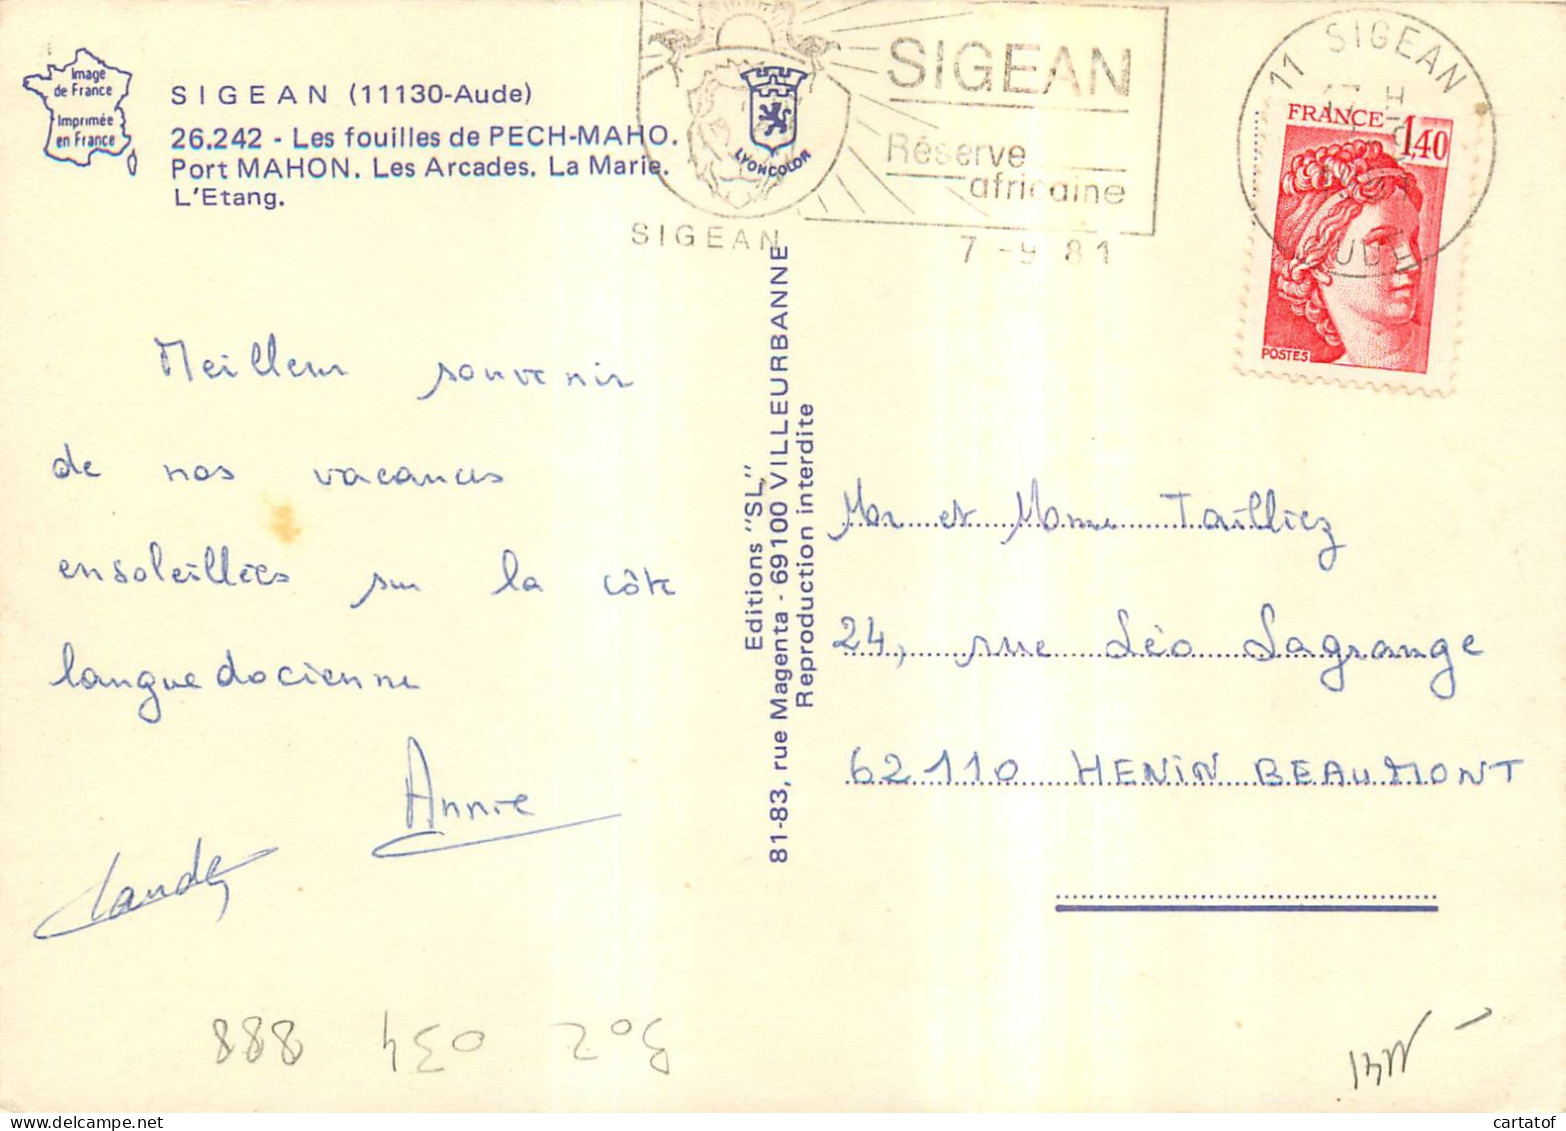 Image
de France
Imprimée
en France
SIGEAN (11130-Aude)
26.242 - Les fouilles de PECH-MAHO.
Port MAHON. Les Arcades. La Marie.
L'Etang.
LYONCOLOR
SIGEAN
SIGEAN
Réserve
africaine
7 - 9 81
11 SIGEAN
AUDE
FRANCE 1,40
POSTES
Meilleur souvenir
de nos vacances
ensoleillées sur la côte
languedocienne
Annie
Claude
Editions "SL"
81-83, rue Magenta - 69100 VILLEURBANNE
Reproduction interdite
Mr et Mme Tailliez
24, rue Léo Lagrange
62110 HENIN BEAUMONT
302 034 888
cartatof